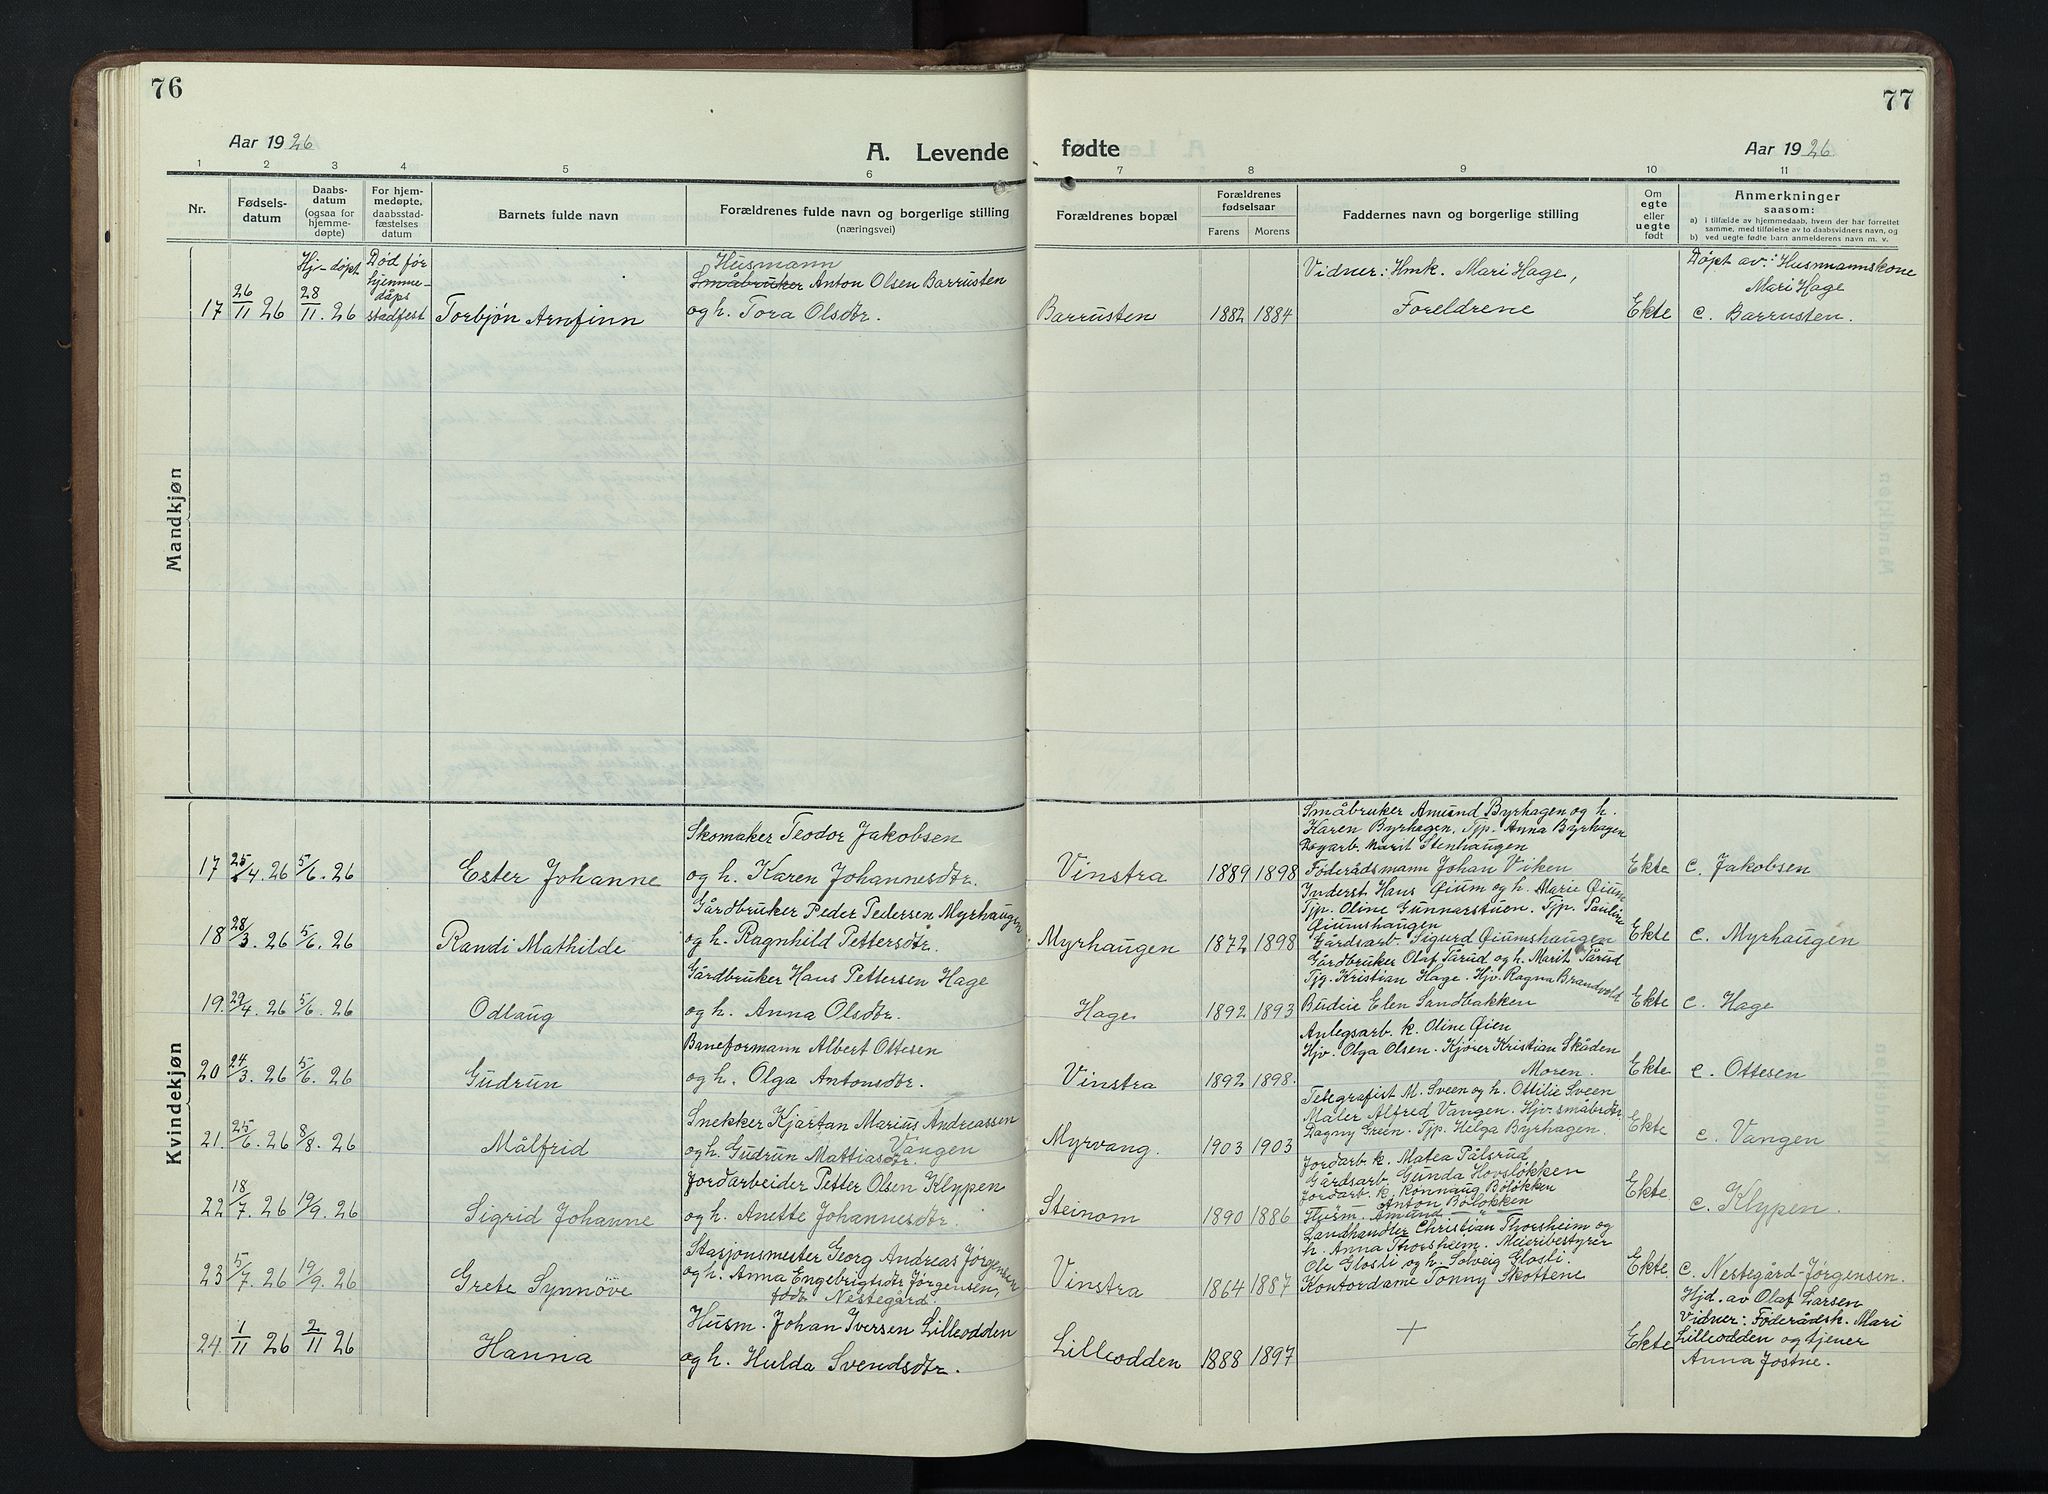 76
Aar 1926
A. Levende
1 2 3 4 5 6
Nr.
Fødsels-
datum
Daabs-
datum
(ogsaa for
hjemme-
døpte)
For hjem-
medøpte,
daabsstad-
fæstelses
datum
Barnets fulde navn
Forældrenes fulde navn og borgerlige stilling
(næringsvei)
77
fødte
Aar 1926.
7 8 9 10 11
Forældrenes bopæl
Forældrenes
fødselsaar
Farens Morens
Faddernes navn og borgerlige stilling
Om
egte
eller
uegte
født
Anmerkninger
saasom:
a) i tilfælde av hjemmedaab, hvem der har forrettet
samme, med tilføielse av to daabsvidners navn, og
b) ved uegte fødte barn anmelderens navn m. v.
Mandkjøn
17 26/11 26
Hj-døpt
28/11. 26
Død før
hjemme-
dåps
stadfest
Torbjøn Arnfinn
Husmann
Småbruker Anton Olsen Barrusten
og h. Tora Olsdtr.
Barrusten 1882 1884
Vidner: Hmk. Mari Hage,
Foreldrene
Ekte
Døpt av: Husmannskone
Mari Hage
c. Barrusten.
Kvindekjøn
17 25/4. 26 5/6. 26 Ester Johanne
Skomaker Teodor Jakobsen
og h. Karen Johannesdtr.
Vinstra 1889 1898
Småbruker Amund Byrhagen og h.
Karen Byrhagen, Tjp. Anna Byrhagen
Dagarb. Marit Stenhaugen
Føderådsmann Johan Viken
Ekte c. Jakobsen
18 28/3. 26 5/6. 26 Randi Mathilde
Gårdbruker Peder Pedersen Myrhaugen
og h. Ragnhild Pettersdtr.
Myrhaugen 1872 1898
Inderst Hans Øium og h. Marie Øium
Tjp. Oline Gunnarstuen. Tjp. Pauline
Øiumshaugen
Gårdsarb. Sigurd Øiumshaugen
Ekte c. Myrhaugen
19. 29/4. 26 5/6. 26 Odlaug
Gårdbruker Hans Pettersen Hage
og h. Anna Olsdtr.
Hage 1892 1893
Gårdbruker Olaf Tårud og h. Marit Tårud
Tjg. Kristian Hage. Hjv. Ragna Brandvold
Budeie Elen Sandbakken
Ekte c. Hage
20 24/3. 26 5/6. 26 Gudrun
Baneformann Albert Ottesen
og h. Olga Antonsdtr.
Vinstra 1892 1898.
Anlegsarb. k. Oline Øien
Hjv. Olga Olsen. Kjører Kristian Skåden
Moren.
Ekte c. Ottesen
21. 25/6. 26 8/8. 26 Målfrid
Snekker Kjartan Marius Andreassen
Vangen
og h. Gudrun Mattiasdtr.
Myrvang. 1903 1903
Telegrafist M. Sveen og h. Ottilie Sveen
Maler Alfred Vangen. Hjv. småbrdtr.
Dagny Green. Tjp. Helga Byrhagen.
Ekte c. Vangen
22 18/7. 26 19/9. 26 Sigrid Johanne
Jordarbeider Petter Olsen Klypen
og h. Anette Johannesdtr.
Steinom 1890 1886
Jordarb. k. Matea Pålsrud
Gårdsarb. Gunda Hovsløkken
Jordarb. k. Rønnaug Bøløkken
Anton Bøløkken
Husm. Amund — " —
Ekte. c. Klypen.
23 5/7. 26 19/9. 26 Grete Synnøve
Stasjonsmester Georg Andreas Jørgensen
og h. Anna Engebrigtsdtr Jørgensen,
født Nestegård.
Vinstra 1864 1887
Landhandler Christian Thorsheim og
h. Anna Thorsheim. Meieribestyrer
Ole Glosli og h. Solveig Glosli.
Kontordame Tonny Skottene
Ekte. c. Nestegård-Jørgensen.
24. 1/11 26 2/11 26 Hanna
Husm. Johan Iversen Lilleodden
og h. Hulda Svendsdtr.
Lilleodden 1888 1897
+
Ekte
Hjd. av Olaf Larsen
Vidner: Føderådsk. Mari
Lilleodden og tjener
Anna Jostne.